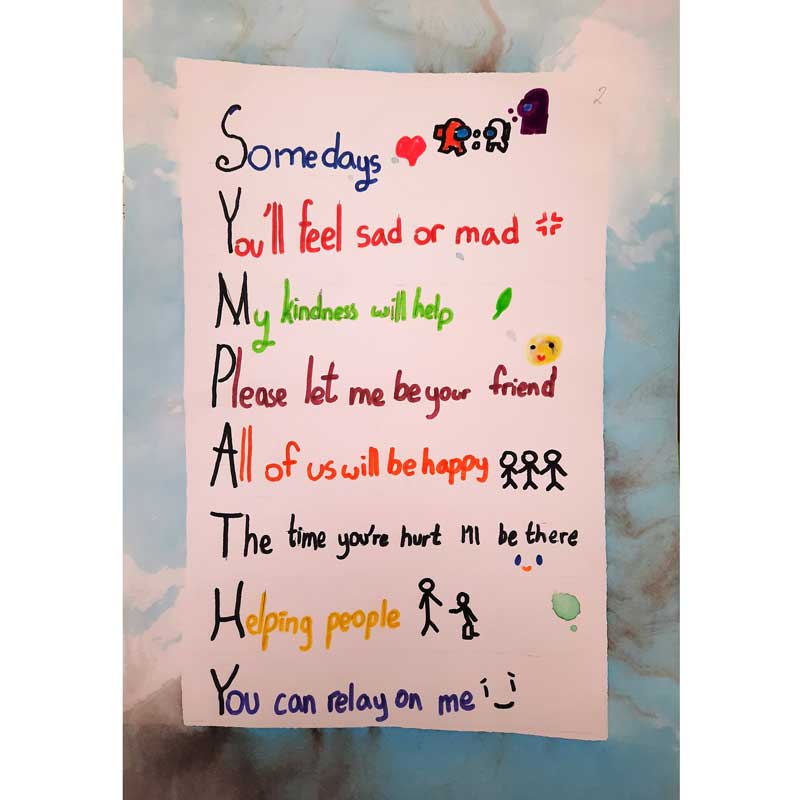 2
Somedays
You'll feel sad or mad
My kindness will help
Please let me be your friend
All of us will be happy
The time you're hurt I'll be there
Helping people
You can relay on me